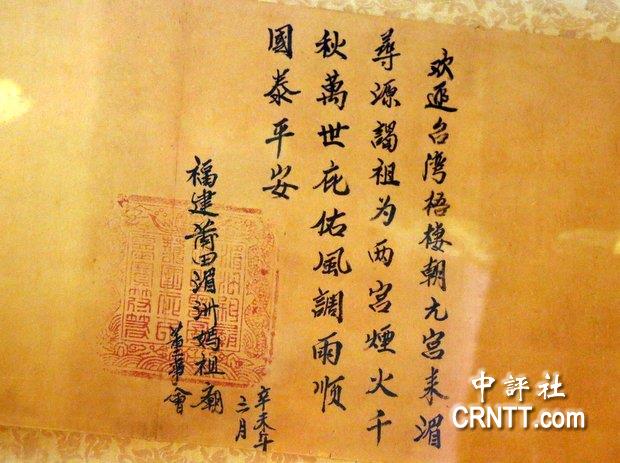 欢迎台湾梧棲朝元宫来湄
尋源謁祖为两宫煙火千
秋萬世庇佑風調雨顺
國泰平安
福建莆田湄洲媽祖廟
董事會
辛未年
三月
中評社
CRNTT.com